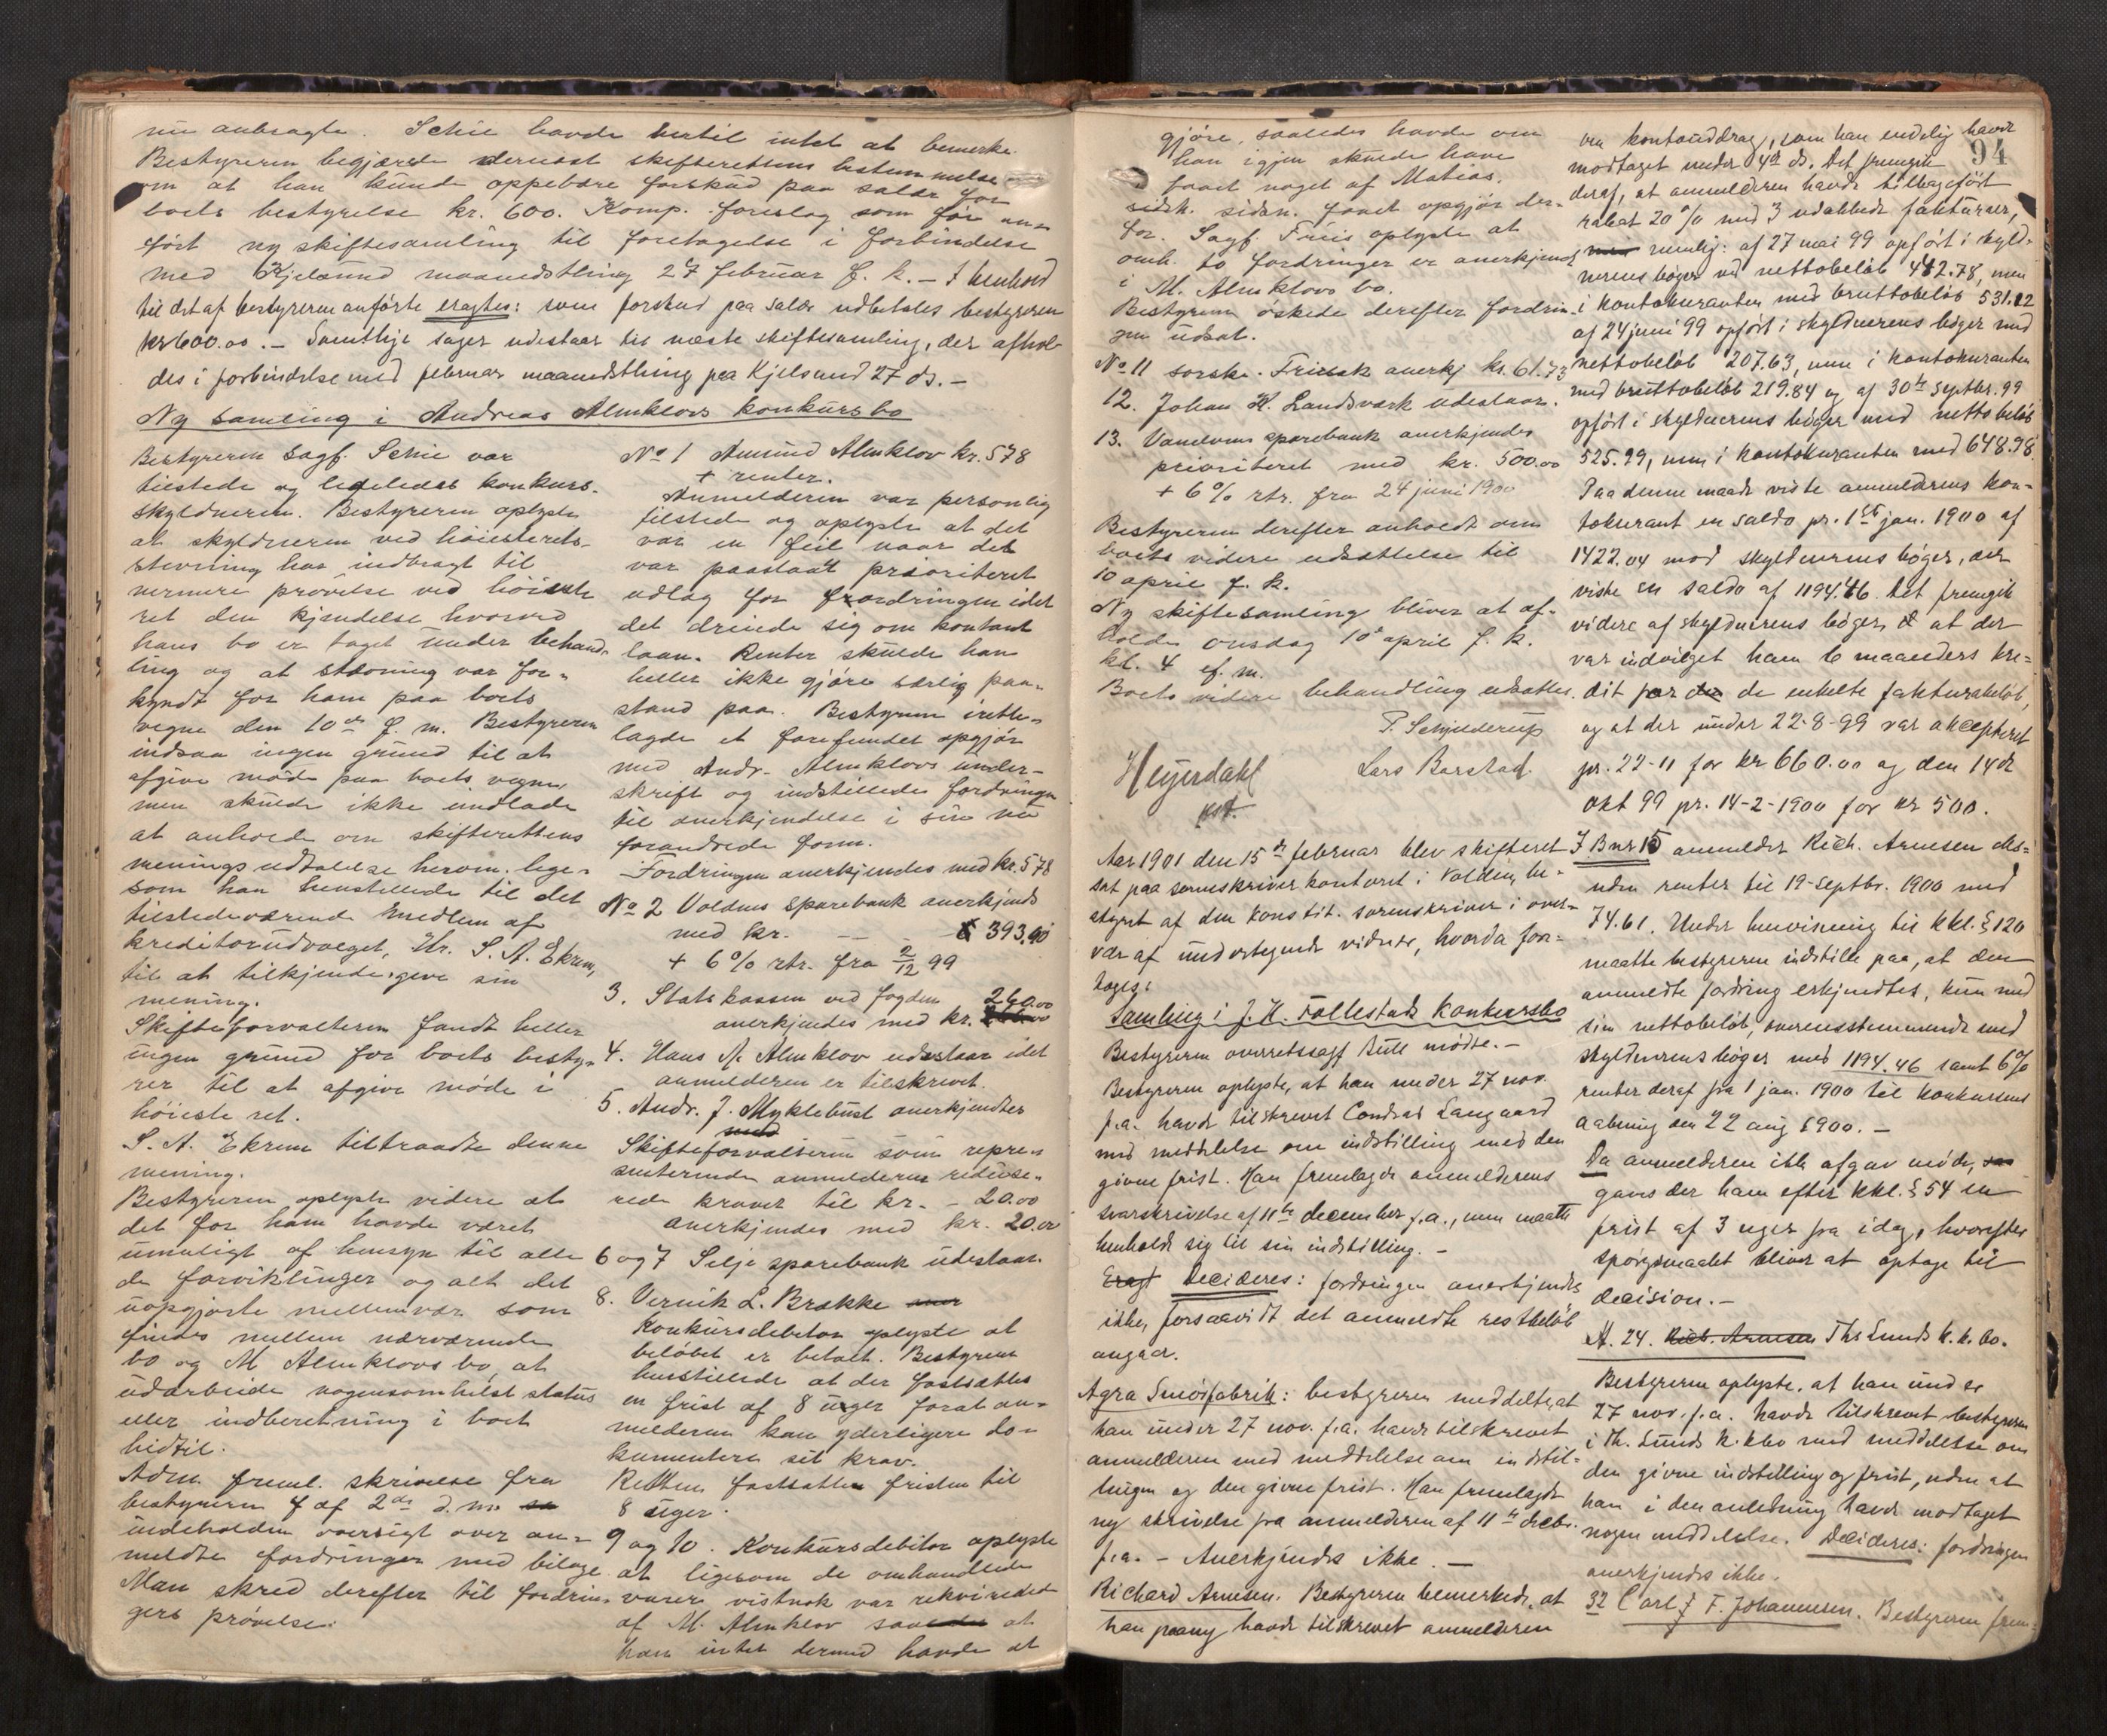 nu anbragte. Schie havde hertil intet at bemerke.
Bestyreren begjærede dernæst skifterettens bestemmelse
om at han kunde oppebære forskud paa salær for
boets bestyrelse kr. 600. Komp. foreslog som før an-
ført ny skiftesamling til foretagelse i forbindelse
med Kjelsund maanedsthing 27 februar f. k. – I henhold
til det af bestyreren anførte eragtes: som forskud paa salær udbetales bestyreren
kr 600.00. – Samtlige sager udestaar til næste skiftesamling, der afhol-
des i forbindelse med februar maanedsthing paa Kjelsund 27 ds. –
Ny samling i Andreas Almklovs konkursbo
Bestyreren sagf. Schie var
tilstede og ligeledes konkurs-
skyldneren. Bestyreren oplyste
at skyldneren ved høiesterets-
stevning har indbragt til
nermere prøvelse ved høieste
ret den kjendelse hvorved
hans bo er taget under behand-
ling og at stævning var for-
kyndt for ham paa boets
vegne den 10de f. m. Bestyreren
indsaa ingen grund til at
afgive møde paa boets vegne,
men skulde ikke undlade
at anholde om skifterettens
meningsudtalelse herom lige-
som han henstillede til det
tilstedeværende medlem af
kreditorudvalget, Hr. S. A. Ekrem,
til at tilkjendegive sin
mening.
Skifteforvalteren fandt heller
ingen grund for boets besty-
rer til at afgive møde i
høieste ret.
S. A. Ekrem tiltraadte denne
mening.
Bestyreren oplyste videre at
det for ham havde været
umuligt af hensyn til alle
de forviklinger og alt det
uopgjorte mellemvær som
findes mellem nærværende
bo og M Almklovs bo, at
udarbeide nogensomhelst status
eller indberetning i boet
hidtil.
Adm. freml. skrivelse fra
bestyreren af 2den d. m.
indeholden oversigt over an-
meldte fordringer med bilage.
Man skred derefter til fordrin-
gers prøvelse:
No 1 Amund Almklov kr. 578
+ renter.
Anmelderen var personlig
tilstede og oplyste at det
var en feil naar det
var paastaat prioriteret
udlæg for fordringen idet
det dreiede sig om kontant
laan. Renter skulde han
heller ikke gjøre særlig paa-
stand paa. Bestyreren irette-
lagde et forefundet opgjør
med Andr. Almklovs under-
skrift og indstillede fordringen
til anerkjendelse i sin nu
forandrede form.
Fordringen anerkjendes med kr. 578
No 2 Voldens sparebank anerkjendes
med kr. – – 393,90
+ 6% rtr. fra 2/12 99
3. Statskassen ved fogden 240.00
anerkjendes med kr.
4. Hans A. Almklov udestaar idet
anmelderen er tilskrevet.
5. Andr. J. Myklebust anerkjendtes
med
Skifteforvalteren som repre-
senterende anmelderen reduse-
rede kravet til kr. – 20.00
anerkjendes med kr. 20.00
6 og 7 Selje sparebank udestaar.
8. Vernik L. Brække
Konkursdebitor oplyste at
beløbet er betalt. Bestyreren
henstillede at der fastsættes
en frist af 8 uger forat an-
melderen kan yderligere do-
kumentere sit krav.
Retten fastsatte fristen til
8 uger.
9 og 10. Konkursdebitor oplyste
at ligesom de omhandlede
varer vistnok var rekvireret
af M. Almklov at
han intet dermed havde at
gjøre, saaledes havde om
han igjen skulde have
faaet noget af Matias.
sidsk. siden. faaet opgjør der-
for. Sagf. Friis oplyste at
omh. to fordringer er anerkjendt
i M. Almklovs bo.
Bestyreren øskede derefter fordrin-
gen udsat.
No 11 sorskr. anerkj kr. 61.73
12. Johan K. Landsværk udestaar.
13. Vanelvens sparebank anerkjendes
prioriteret med kr. 500.00
+ 6% rtr. fra 24 juni 1900
Bestyreren derefter anholdt om
boets videre udsættelse til
10 april f. k.
Ny skiftesamling bliver at af-
holde onsdag 10de april f. k.
kl. 4 ef. m.
Boets videre behandling udsattes.
P. Schjelderup
Heyerdahl
kst.
Lars Barstad.
Aar 1901 den 15de februar blev skifteret
sat paa sorenskriverkontoret i Volden, be-
styret af den konstit. sorenskriver i over-
vær af undertegnede vidner, hvorda fore-
toges:
Samling i J. H. Follestads konkursbo
Bestyreren overretssagf Bull mødte. –
Bestyreren oplyste, at han under 27 nov.
f.a. havde tilskrevet Conrad Langaard
med meddelelse om indstilling med den
givne frist. Han fremlagde anmelderens
svarskrivelse af 11te december f.a., men maatte
henholde sig til sin indstilling. –
Eragt Decideres: fordringen anerkjendes
ikke, forsaavidt det anmeldte restbeløb
angaar.
Agra Smørfabrik: bestyreren meddelte, at
han under 27 nov. f.a. havde tilskrevet
anmelderen med meddelelse om indstil-
lingen og den givne frist. Han fremlagde
ny skrivelse fra anmelderen af 11te decbr.
f.a. – Anerkjendes ikke. –
Richard Arnesen. Bestyreren bemerkede, at
han paany havde tilskrevet anmelderen
94
om kontouddrag, som han endelig havde
modtaget under 4de ds. Det fremgik
deraf, at anmelderen havde tilbageført
rabat 20% med 3 udakkede fakturaer,
nemlig: af 27 mai 99 opført i skyld-
nerens bøger ved nettobeløb 442.78, men
i kontokuranten med bruttobeløb 531.12
af 24 juni 99 opført i skyldnerens bøger med
nettobeløb 207.63, men i kontokuranten
med bruttobeløb 219.84 og af 30te septbr. 99
opført i skyldnerens bøger med nettobeløb
525.99, men i kontokuranten med 648.98.
Paa denne maade viste anmelderens kon-
tokurant en saldo pr. 1ste jan. 1900 af
1422.04 mod skyldnerens bøger, der
viste en saldo af 1194.46. Det fremgik
videre af skyldnerens bøger, at der
var indvilget ham 6 maaneders kre-
dit paa de enkelte fakturabeløb,
og at der under 22-8-99 var akcepteret
pr. 22-11 for kr 660.00 og den 14de
okt 99 pr. 14-2-1900 for kr 500.
I. B nr 15 anmelder Rich. Arnesen des-
uden renter til 19-septbr. 1900 med
74.61. Under henvisning til kkl. § 120
maatte bestyreren indstille paa, at den
anmeldte fordring erkjendtes, kun med
sin nettobeløb, overensstemmende med
skyldnerens bøger med 1194.46 samt 6%
renter deraf fra 1 jan. 1900 til konkursens
aabning den 22 aug 1900. –
Da anmelderen ikke afgav møde,
gaves der ham efter kkl. § 54 en
frist af 3 uger fra idag, hvorefter
spørgsmaalet bliver at optage til
decision. –
A. 24. Rich. Arnesen Ths Lunds k.k. bo.
Bestyreren oplyste, at han under
27 nov. f.a. havde tilskrevet bestyreren
i Th. Lunds k.kbo med meddelelse om
den givne indstilling og frist, uden at
han i den anledning havde modtaget
nogen meddelelse. Decideres: fordringen
anerkjendes ikke.
32 Carl J F. Johannesen. Bestyreren frem-